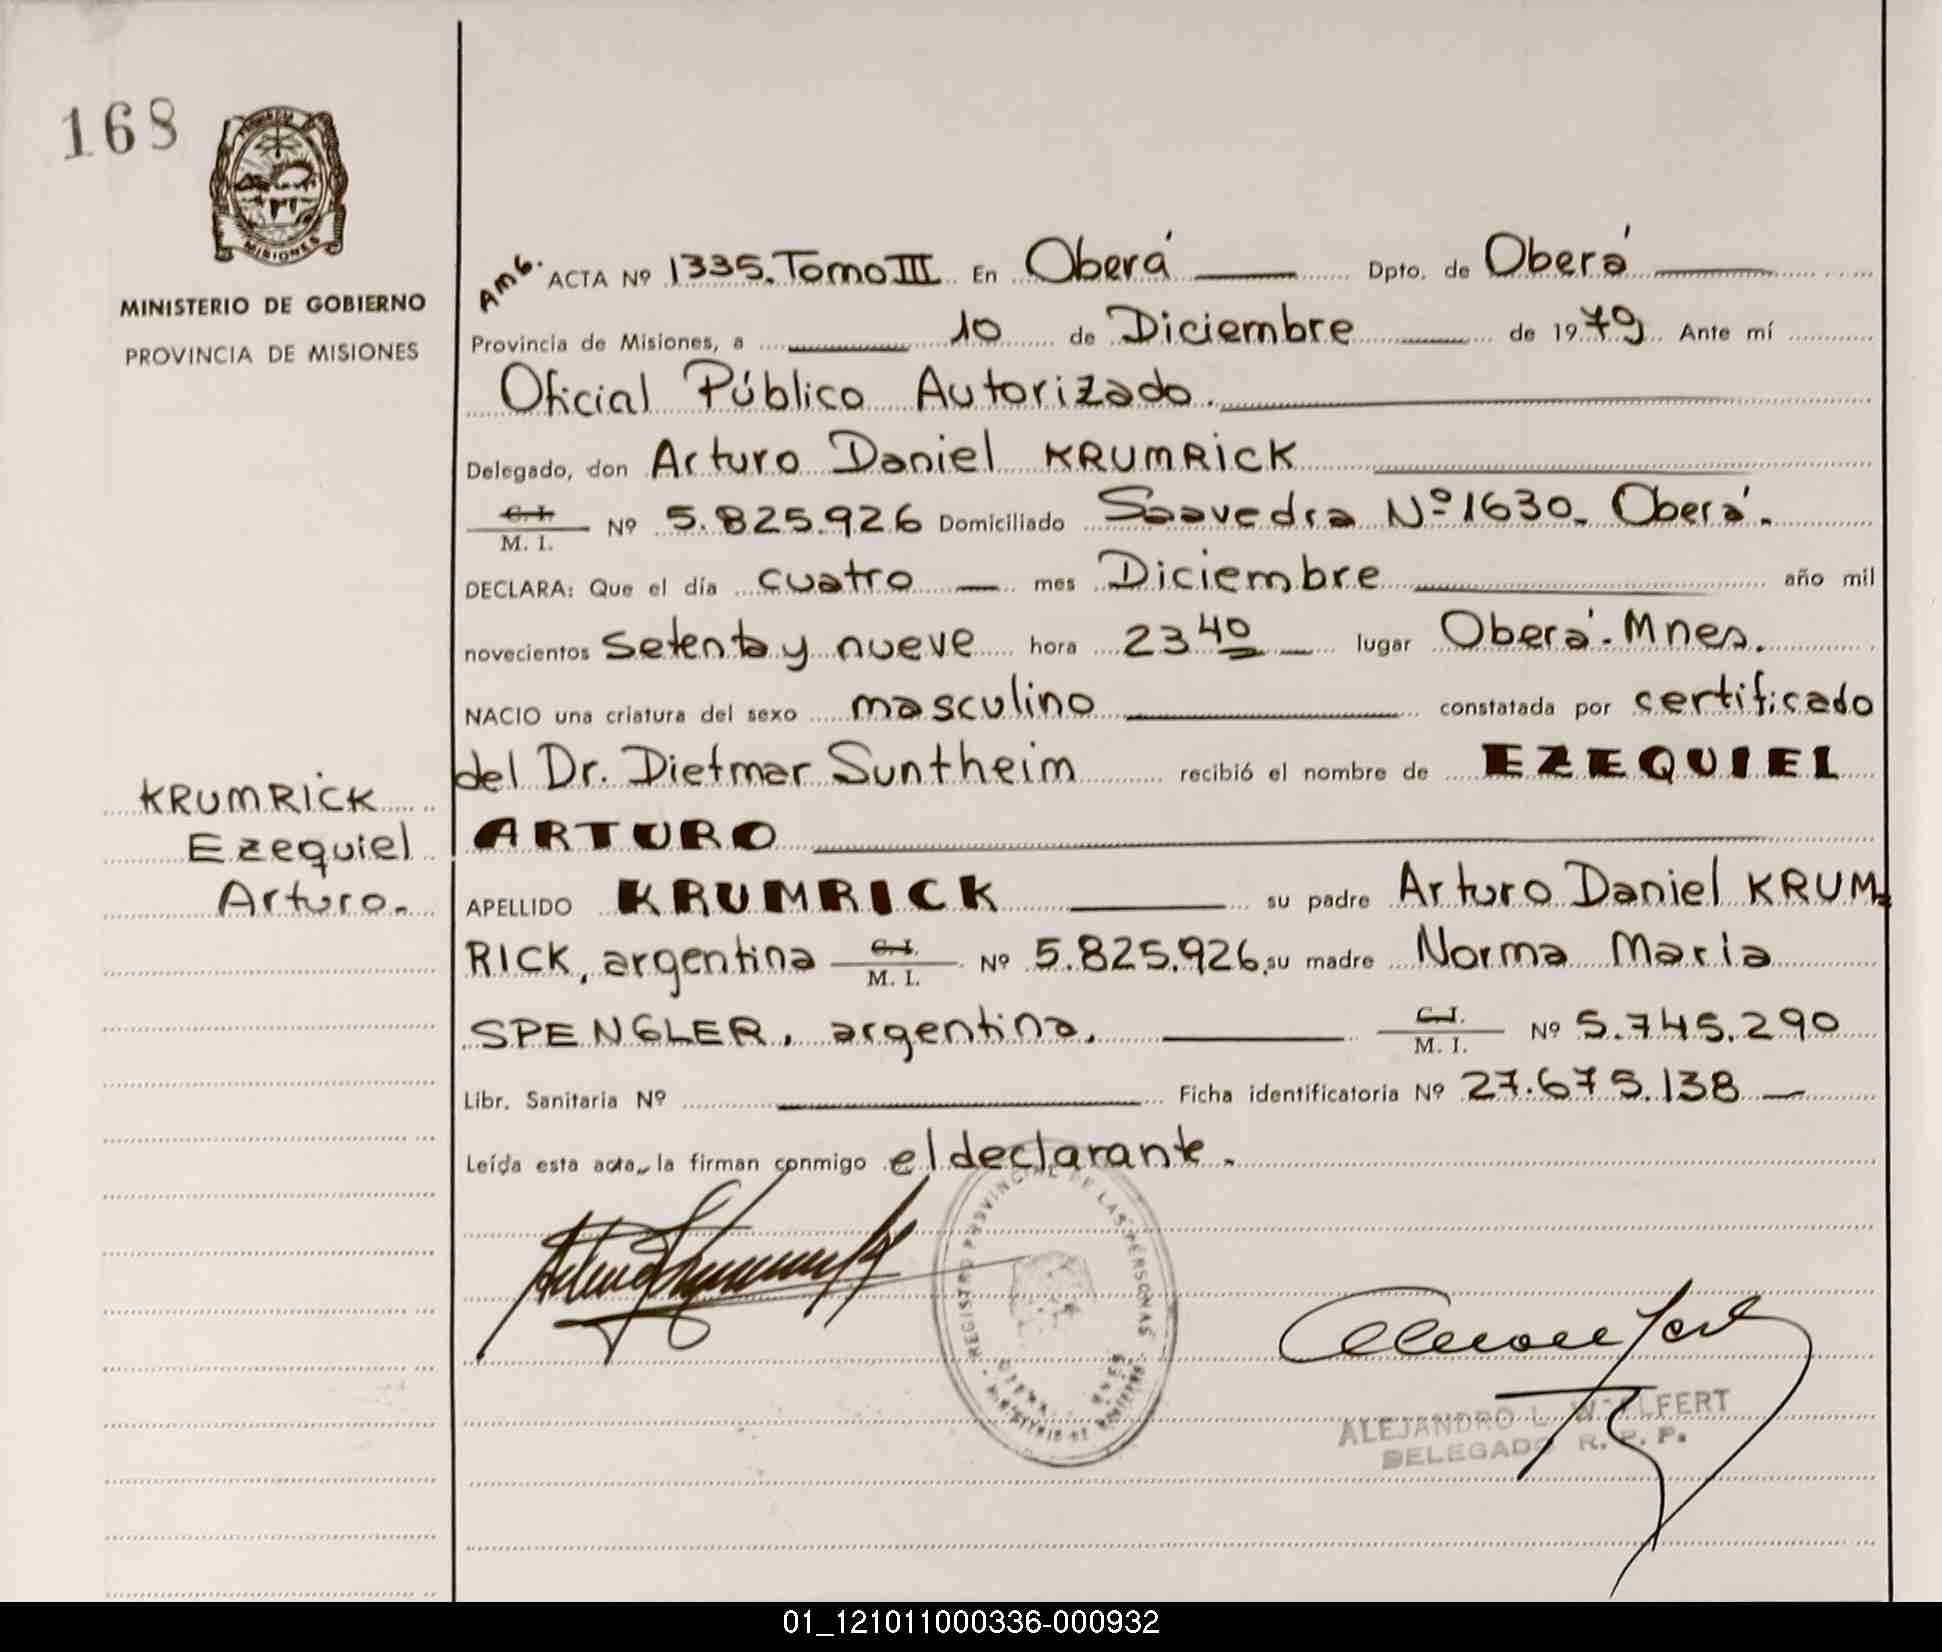 168
MISIONES
MINISTERIO DE GOBIERNO
PROVINCIA DE MISIONES
Amb. ACTA Nº 1335. Tomo III En Oberá Dpto. de Oberá
Provincia de Misiones, a 10 de Diciembre de 1979 Ante mí
Oficial Público Autorizado.
Delegado, don Arturo Daniel KRUMRICK
C. I. / M. I. Nº 5.825.926 Domiciliado Saavedra Nº 1630. Oberá.
DECLARA: Que el día cuatro mes Diciembre año mil
novecientos setenta y nueve hora 23 40 lugar Oberá. Mnes.
NACIO una criatura del sexo masculino constatada por certificado
del Dr. Dietmar Suntheim recibió el nombre de EZEQUIEL
ARTURO
KRUMRICK
Ezequiel
Arturo.
APELLIDO KRUMRICK su padre Arturo Daniel KRUM=
RICK, argentina C. I. / M. I. Nº 5.825.926, su madre Norma Maria
SPENGLER, argentina, C. I. / M. I. Nº 5.745.290
Libr. Sanitaria Nº Ficha identificatoria Nº 27.675.138
Leída esta acta, la firman conmigo el declarante.
REGISTRO PROVINCIAL DE LAS PERSONAS
ALEJANDRO L. WOLFERT
DELEGADO R. P. P.
01_121011000336-000932